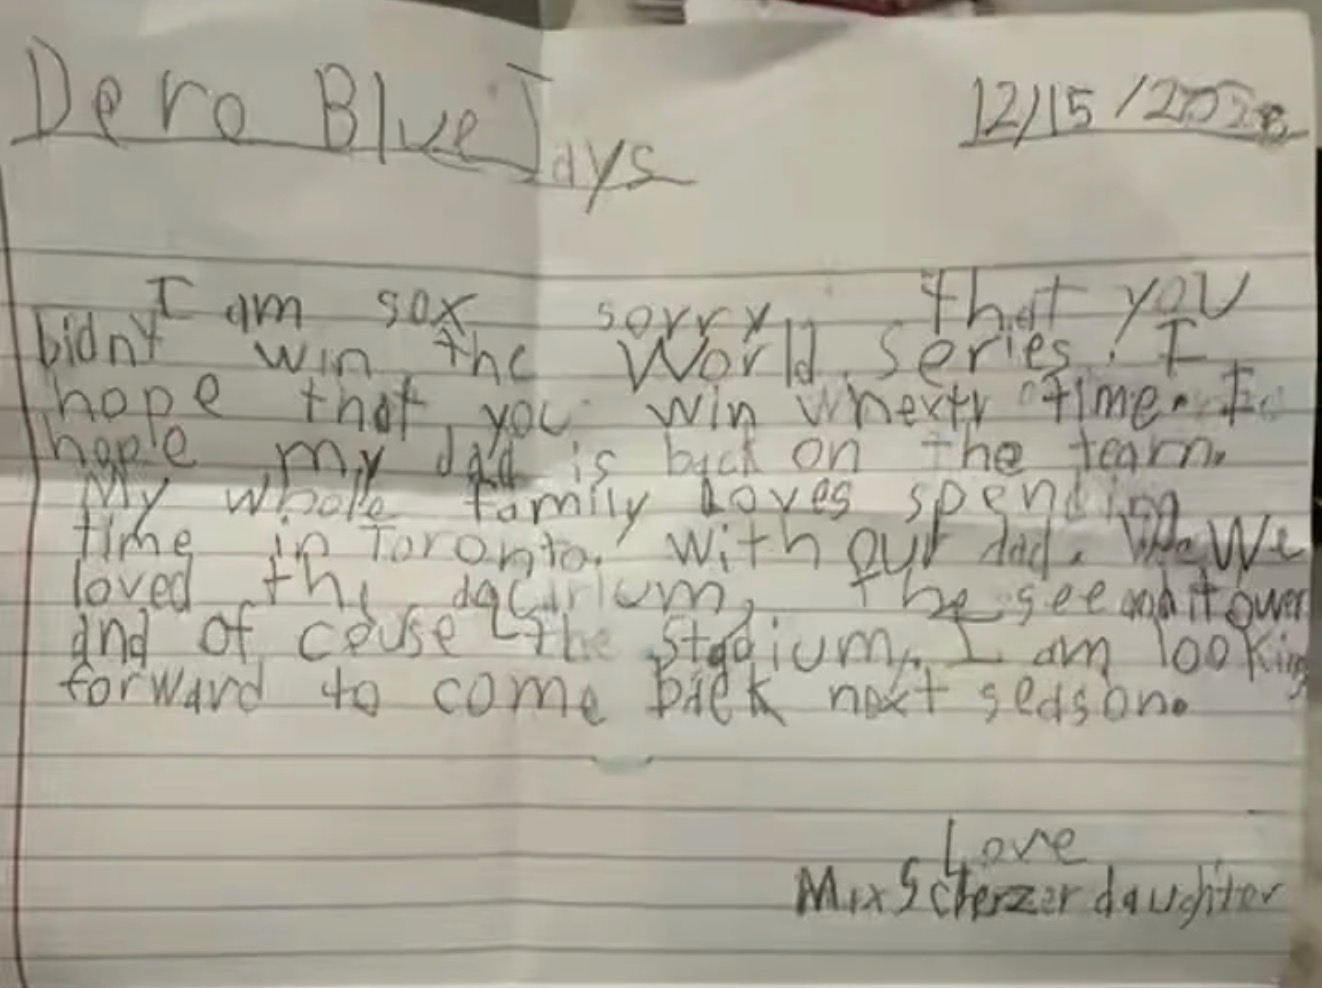 Dero Blue Jays
12/15/202
I am sox sorry that you
bidnt win the World series! I
hope that you win whextr time. I
hople my dad is back on the team.
My whole family Loves spending
time in Toronto. with our dad. We We
loved the aqcurium, the see and it ower
and of couse the stadium. I am looking
forward to come back next season.
Love
Mix Scherzer daughter